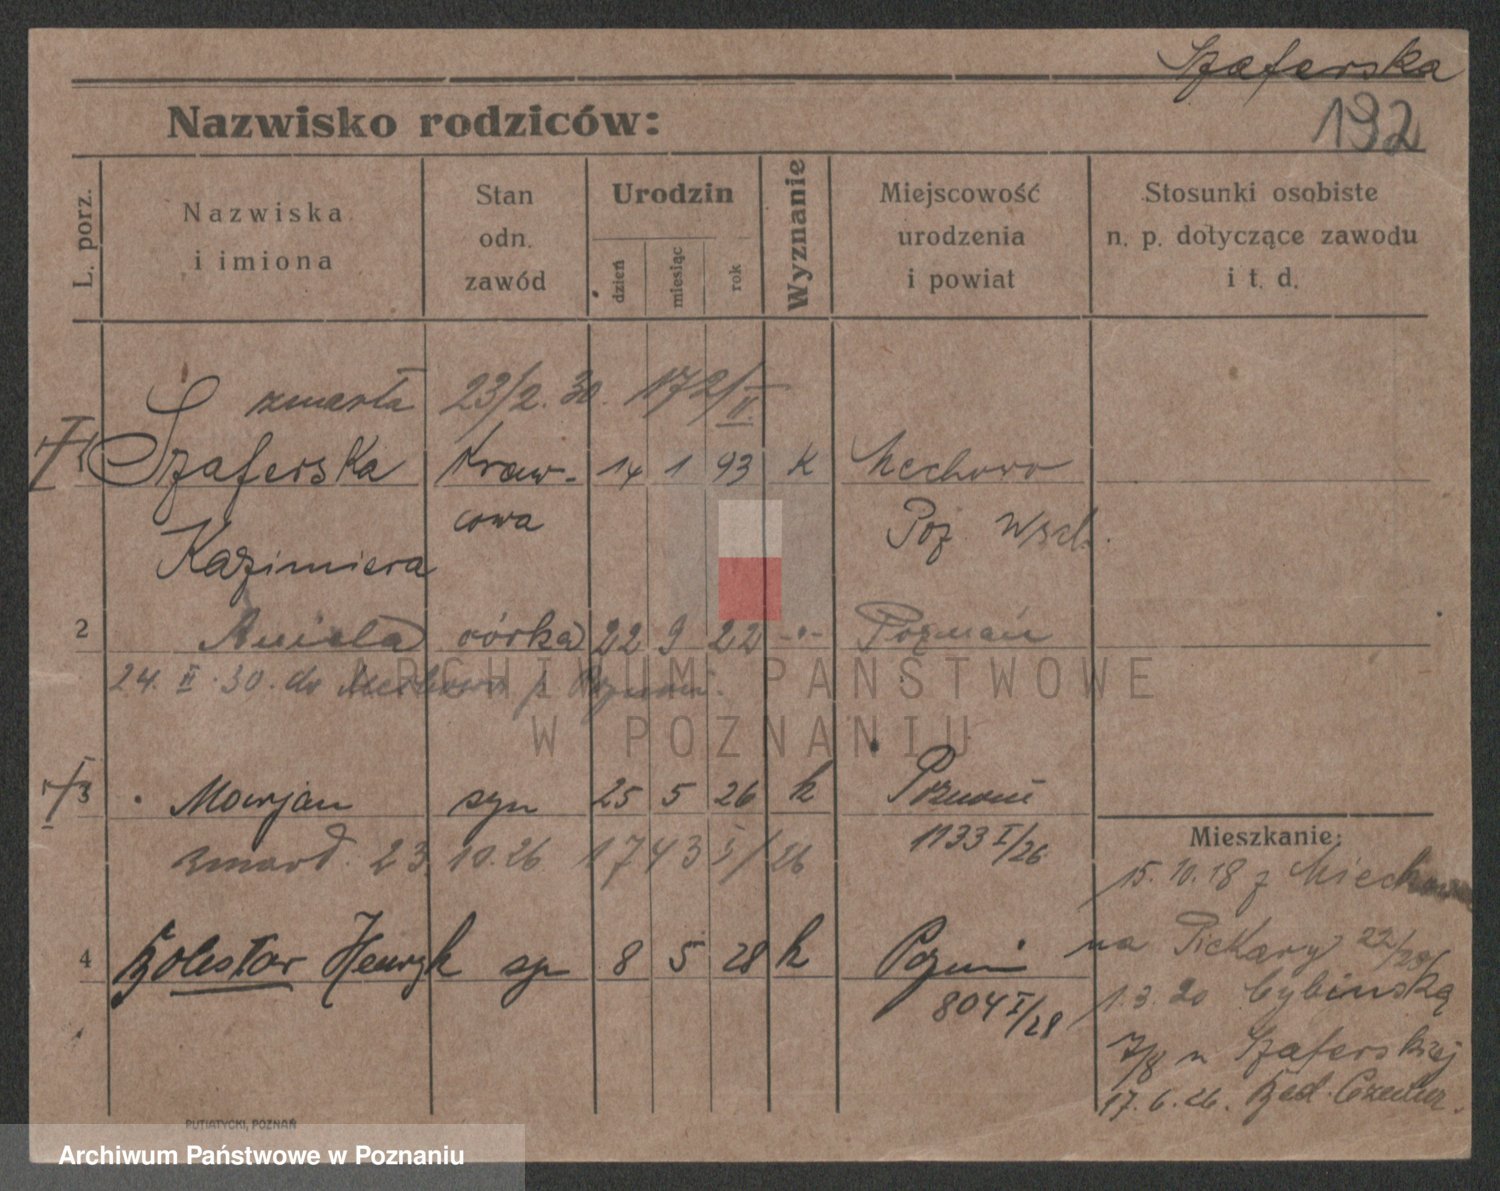 Szaferska
192
Nazwisko rodziców:
L. porz.
Nazwiska
i imiona
Stan
odn.
zawód
Urodzin
dzień
miesiąc
rok
Wyznanie
Miejscowość
urodzenia
i powiat
Stosunki osobiste
n. p. dotyczące zawodu
i t. d.
zmarła 23/2. 30. 172/II.
1 Szaferska Kraw- 14 1 93 k Mechowo
Kazimiera cowa Poz. Wsch.
2 Aniela córka 22 9 22 -"- Poznań
24. II. 30. do Mechowa p. Poznań.
ARCHIWUM PAŃSTWOWE
W POZNANIU
3 Marjan syn 25 5 26 k Poznań
1133 I/26
zmarł. 23. 10. 26 1743 I/26
4 Bolesław Henryk syn 8 5 28 k Poznań
804 I/28
Mieszkanie:
15. 10. 18 z
na Piekary 22/23
1. 3. 20 Cybińska
7/8 u Szaferskiej
17. 6. 26.
PUTIATYCKI, POZNAŃ
Archiwum Państwowe w Poznaniu